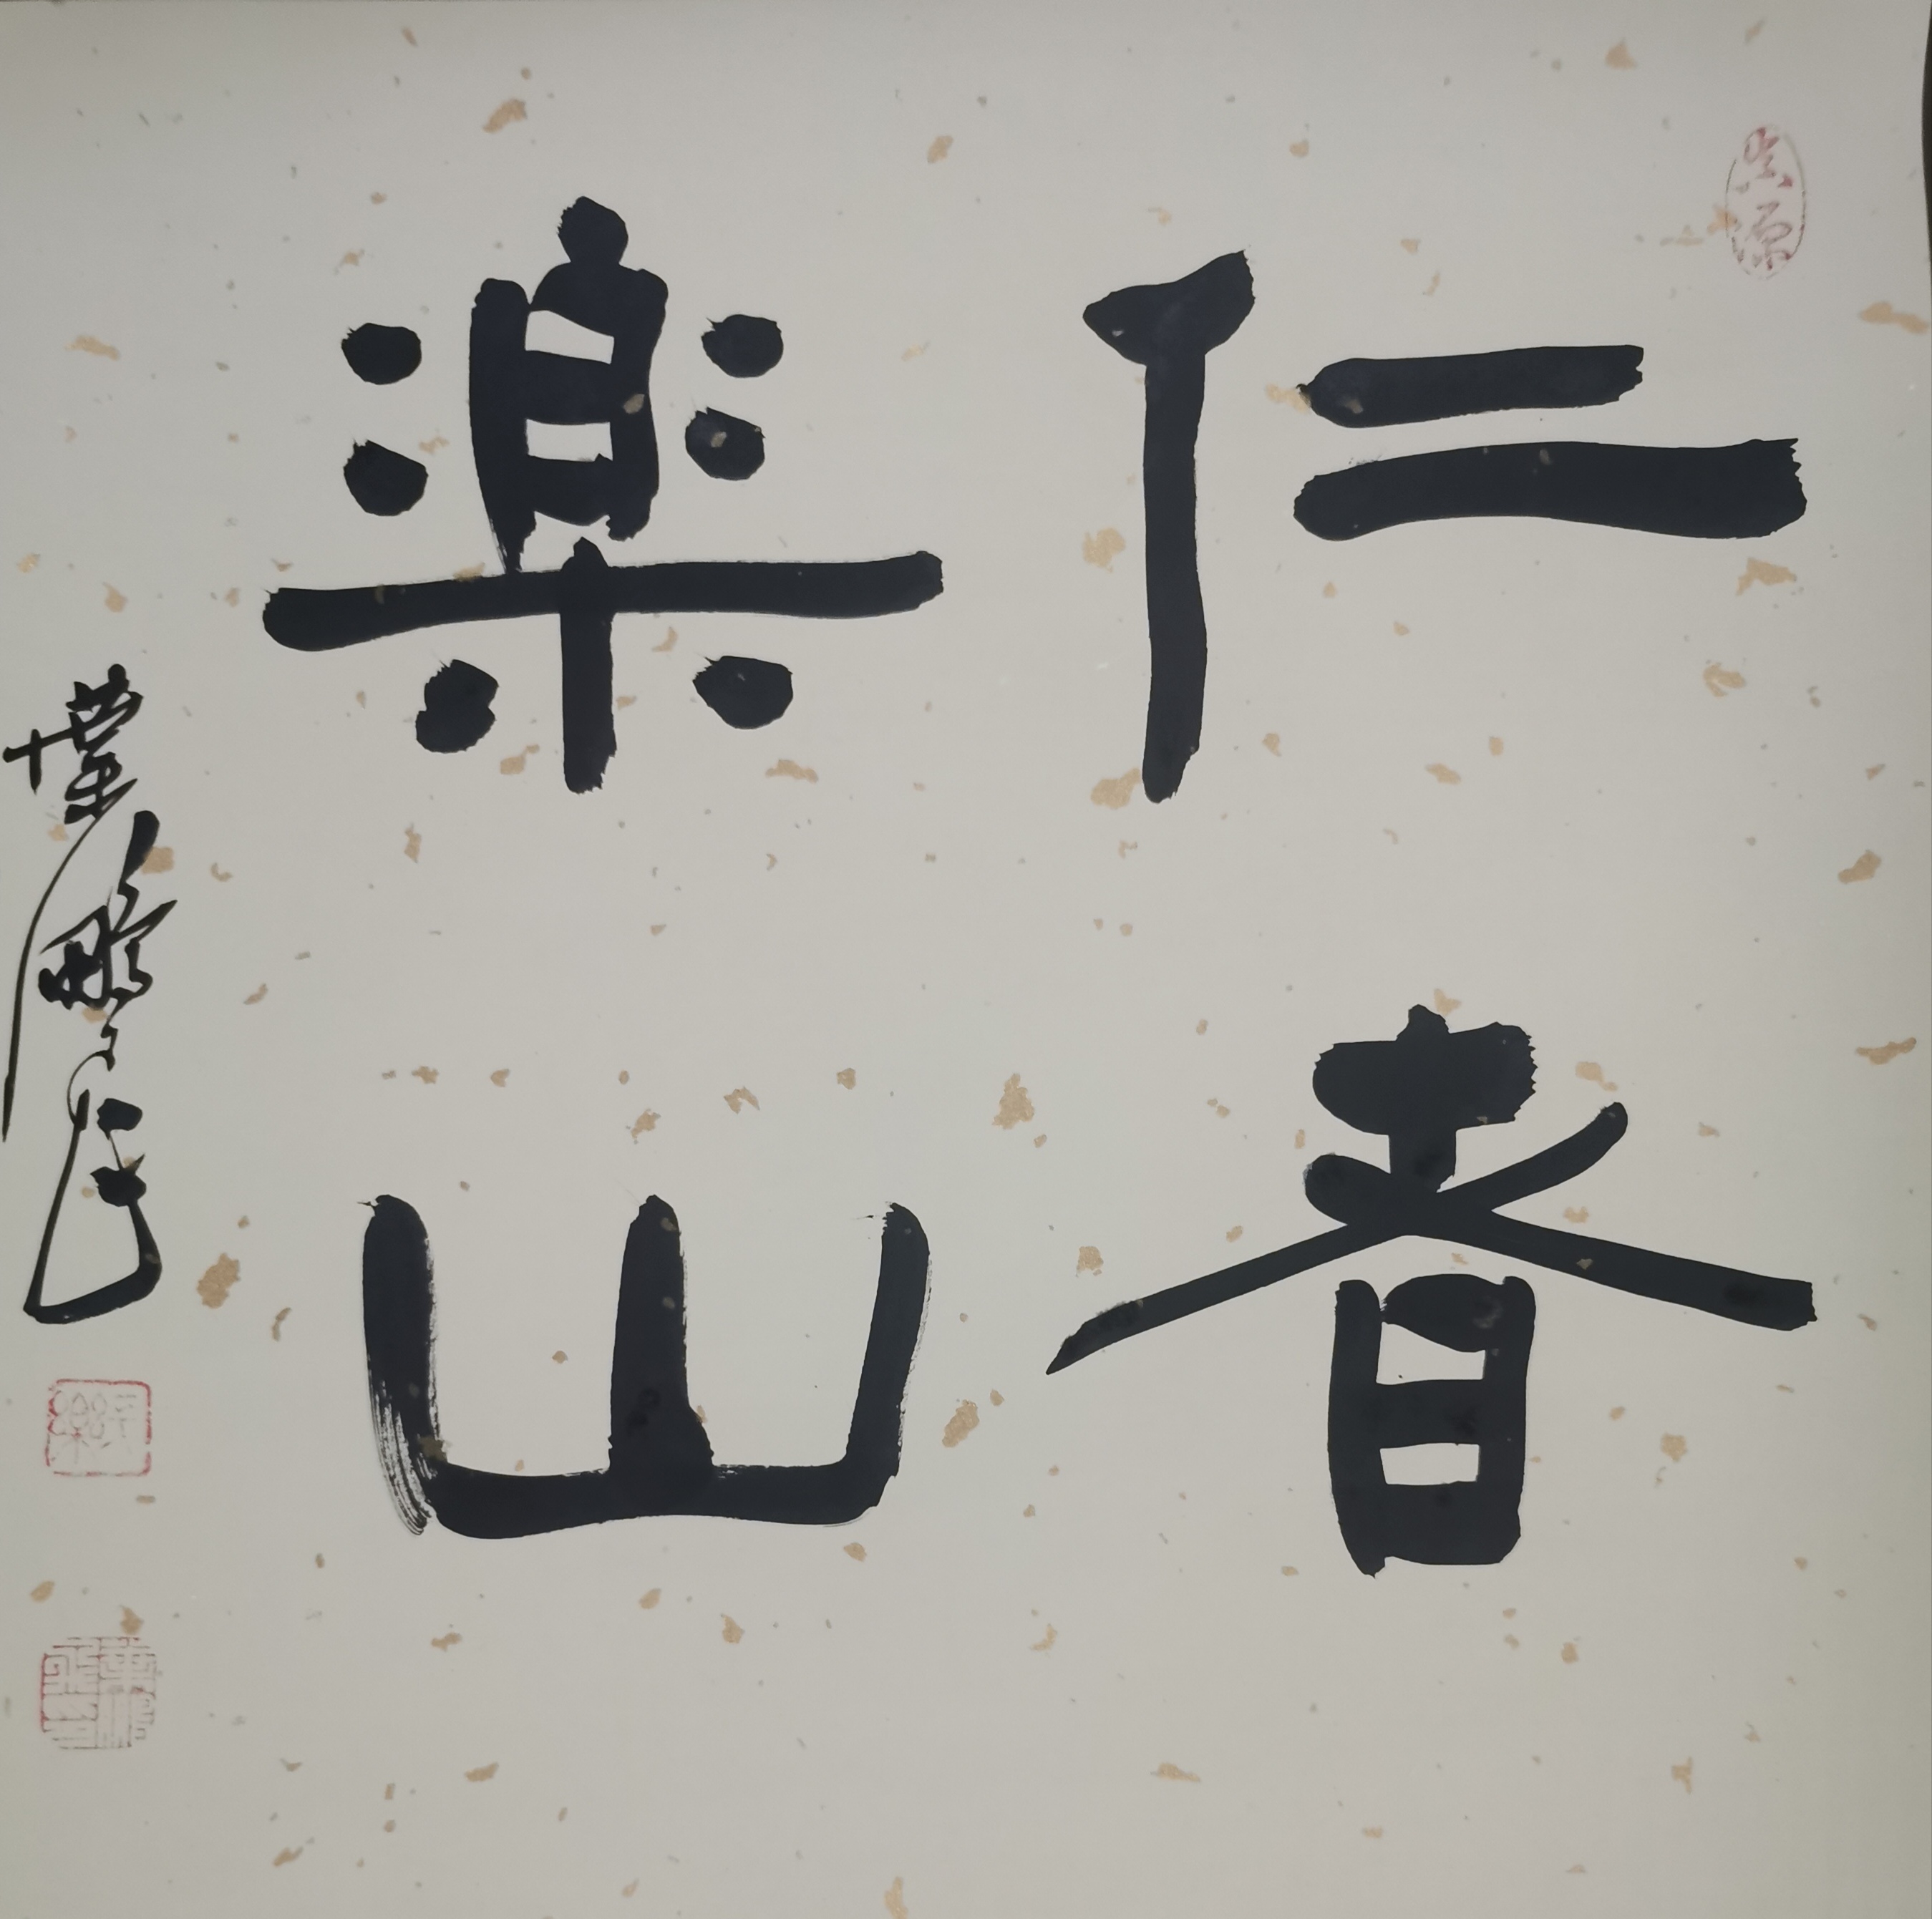 仁者
樂山
葉鵬飛